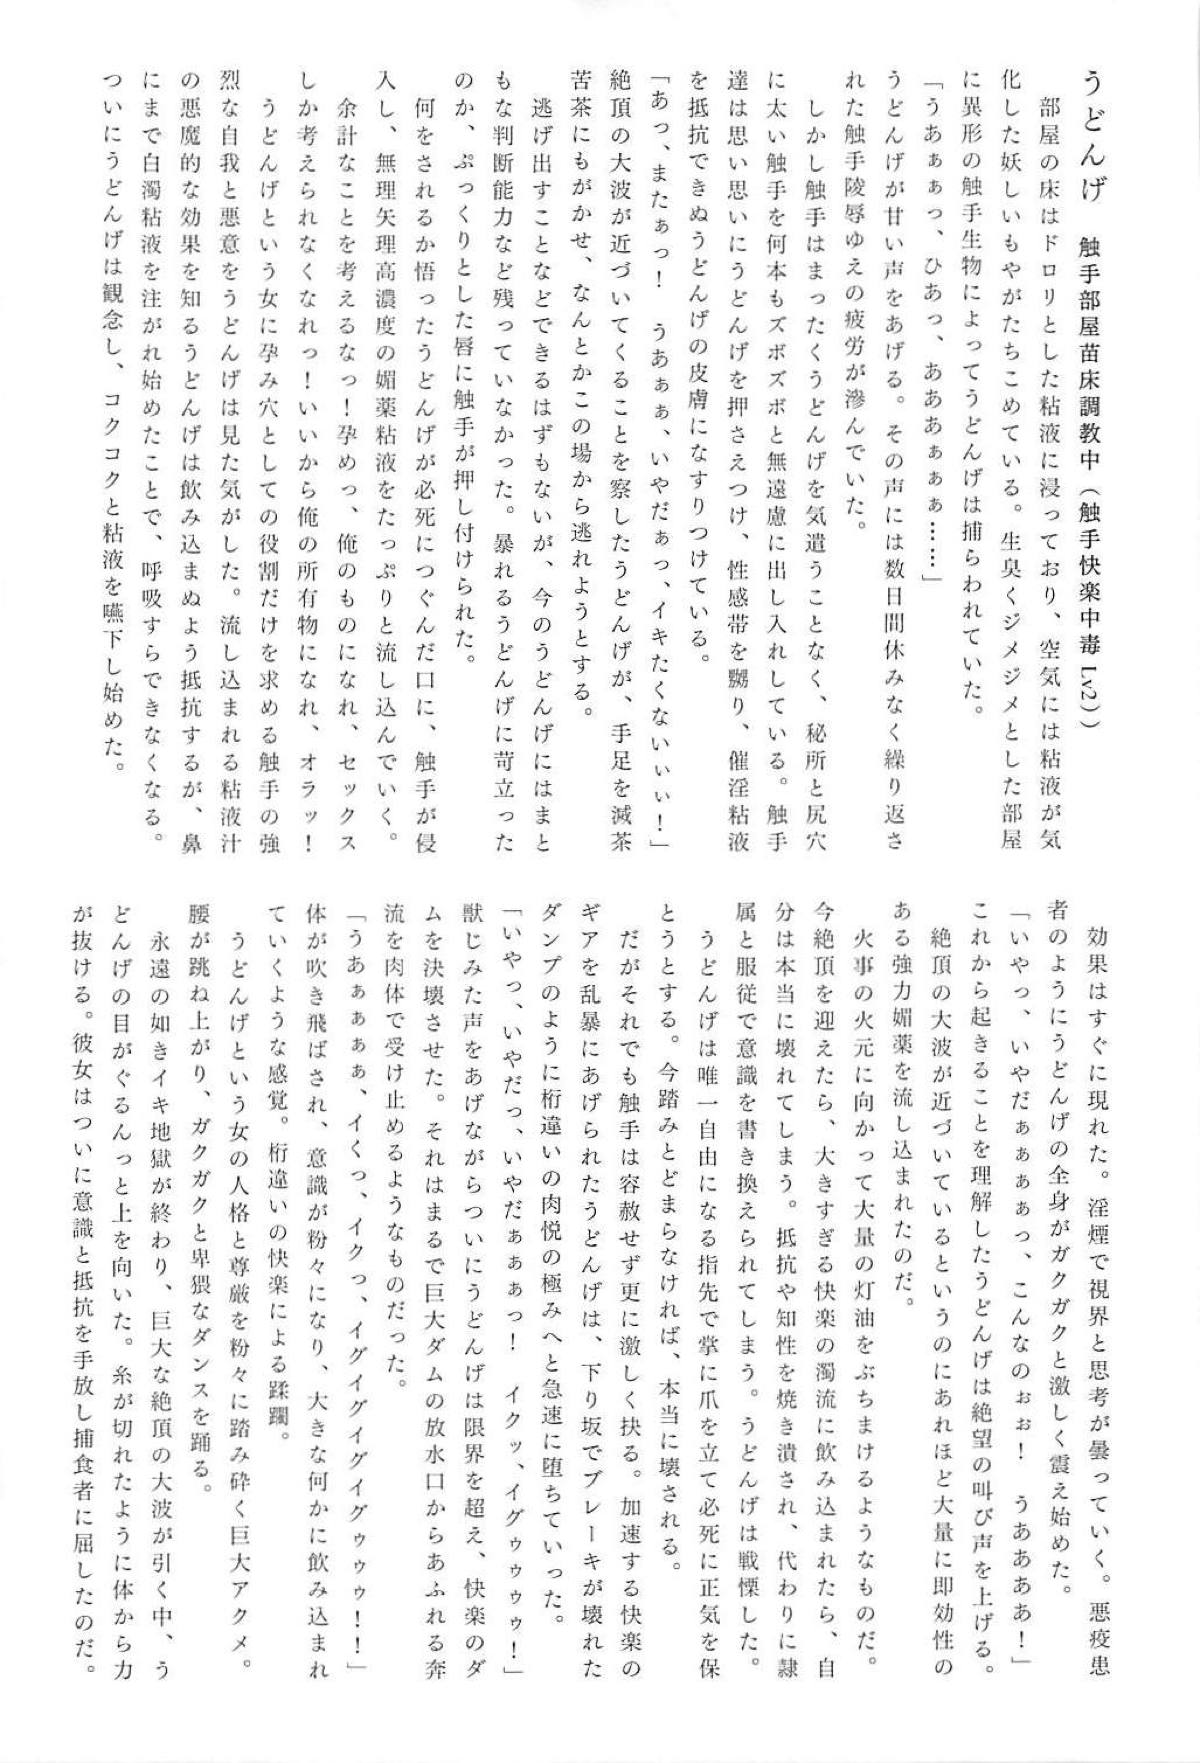 うどんげ　触手部屋苗床調教中（触手快楽中毒Lv2））
　部屋の床はドロリとした粘液に浸っており、空気には粘液が気
化した妖しいもやがたちこめている。生臭くジメジメとした部屋
に異形の触手生物によってうどんげは捕らわれていた。
「うあぁぁっ、ひあっ、あああぁぁぁ……」
うどんげが甘い声をあげる。その声には数日間休みなく繰り返さ
れた触手陵辱ゆえの疲労が滲んでいた。
　しかし触手はまったくうどんげを気遣うことなく、秘所と尻穴
に太い触手を何本もズボズボと無遠慮に出し入れしている。触手
達は思い思いにうどんげを押さえつけ、性感帯を嬲り、催淫粘液
を抵抗できぬうどんげの皮膚になすりつけている。
「あっ、またぁっ！　うあぁぁ、いやだぁっ、イキたくないぃぃ！」
絶頂の大波が近づいてくることを察したうどんげが、手足を滅茶
苦茶にもがかせ、なんとかこの場から逃れようとする。
　逃げ出すことなどできるはずもないが、今のうどんげにはまと
もな判断能力など残っていなかった。暴れるうどんげに苛立った
のか、ぷっくりとした唇に触手が押し付けられた。
　何をされるか悟ったうどんげが必死につぐんだ口に、触手が侵
入し、無理矢理高濃度の媚薬粘液をたっぷりと流し込んでいく。
　余計なことを考えるなっ！孕めっ、俺のものになれ、セックス
しか考えられなくなれっ！いいから俺の所有物になれ、オラッ！
　うどんげという女に孕み穴としての役割だけを求める触手の強
烈な自我と悪意をうどんげは見た気がした。流し込まれる粘液汁
の悪魔的な効果を知るうどんげは飲み込まぬよう抵抗するが、鼻
にまで白濁粘液を注がれ始めたことで、呼吸すらできなくなる。
ついにうどんげは観念し、コクコクと粘液を嚥下し始めた。
　効果はすぐに現れた。淫煙で視界と思考が曇っていく。悪疫患
者のようにうどんげの全身がガクガクと激しく震え始めた。
「いやっ、いやだぁぁぁっ、こんなのぉぉ！　うああああ！」
これから起きることを理解したうどんげは絶望の叫び声を上げる。
　絶頂の大波が近づいているというのにあれほど大量に即効性の
ある強力媚薬を流し込まれたのだ。
　火事の火元に向かって大量の灯油をぶちまけるようなものだ。
今絶頂を迎えたら、大きすぎる快楽の濁流に飲み込まれたら、自
分は本当に壊れてしまう。抵抗や知性を焼き潰され、代わりに隷
属と服従で意識を書き換えられてしまう。うどんげは戦慄した。
　うどんげは唯一自由になる指先で掌に爪を立て必死に正気を保
とうとする。今踏みとどまらなければ、本当に壊される。
　だがそれでも触手は容赦せず更に激しく抉る。加速する快楽の
ギアを乱暴にあげられたうどんげは、下り坂でブレーキが壊れた
ダンプのように桁違いの肉悦の極みへと急速に堕ちていった。
「いやっ、いやだっ、いやだぁぁぁっ！　イクッ、イグゥゥゥ！」
獣じみた声をあげながらついにうどんげは限界を超え、快楽のダ
ムを決壊させた。それはまるで巨大ダムの放水口からあふれる奔
流を肉体で受け止めるようなものだった。
「うあぁぁぁぁ、イくっ、イクっ、イグイグイグイグゥゥゥ！！」
体が吹き飛ばされ、意識が粉々になり、大きな何かに飲み込まれ
ていくような感覚。桁違いの快楽による蹂躙。
　うどんげという女の人格と尊厳を粉々に踏み砕く巨大アクメ。
腰が跳ね上がり、ガクガクと卑猥なダンスを踊る。
　永遠の如きイキ地獄が終わり、巨大な絶頂の大波が引く中、う
どんげの目がぐるんっと上を向いた。糸が切れたように体から力
が抜ける。彼女はついに意識と抵抗を手放し捕食者に屈したのだ。